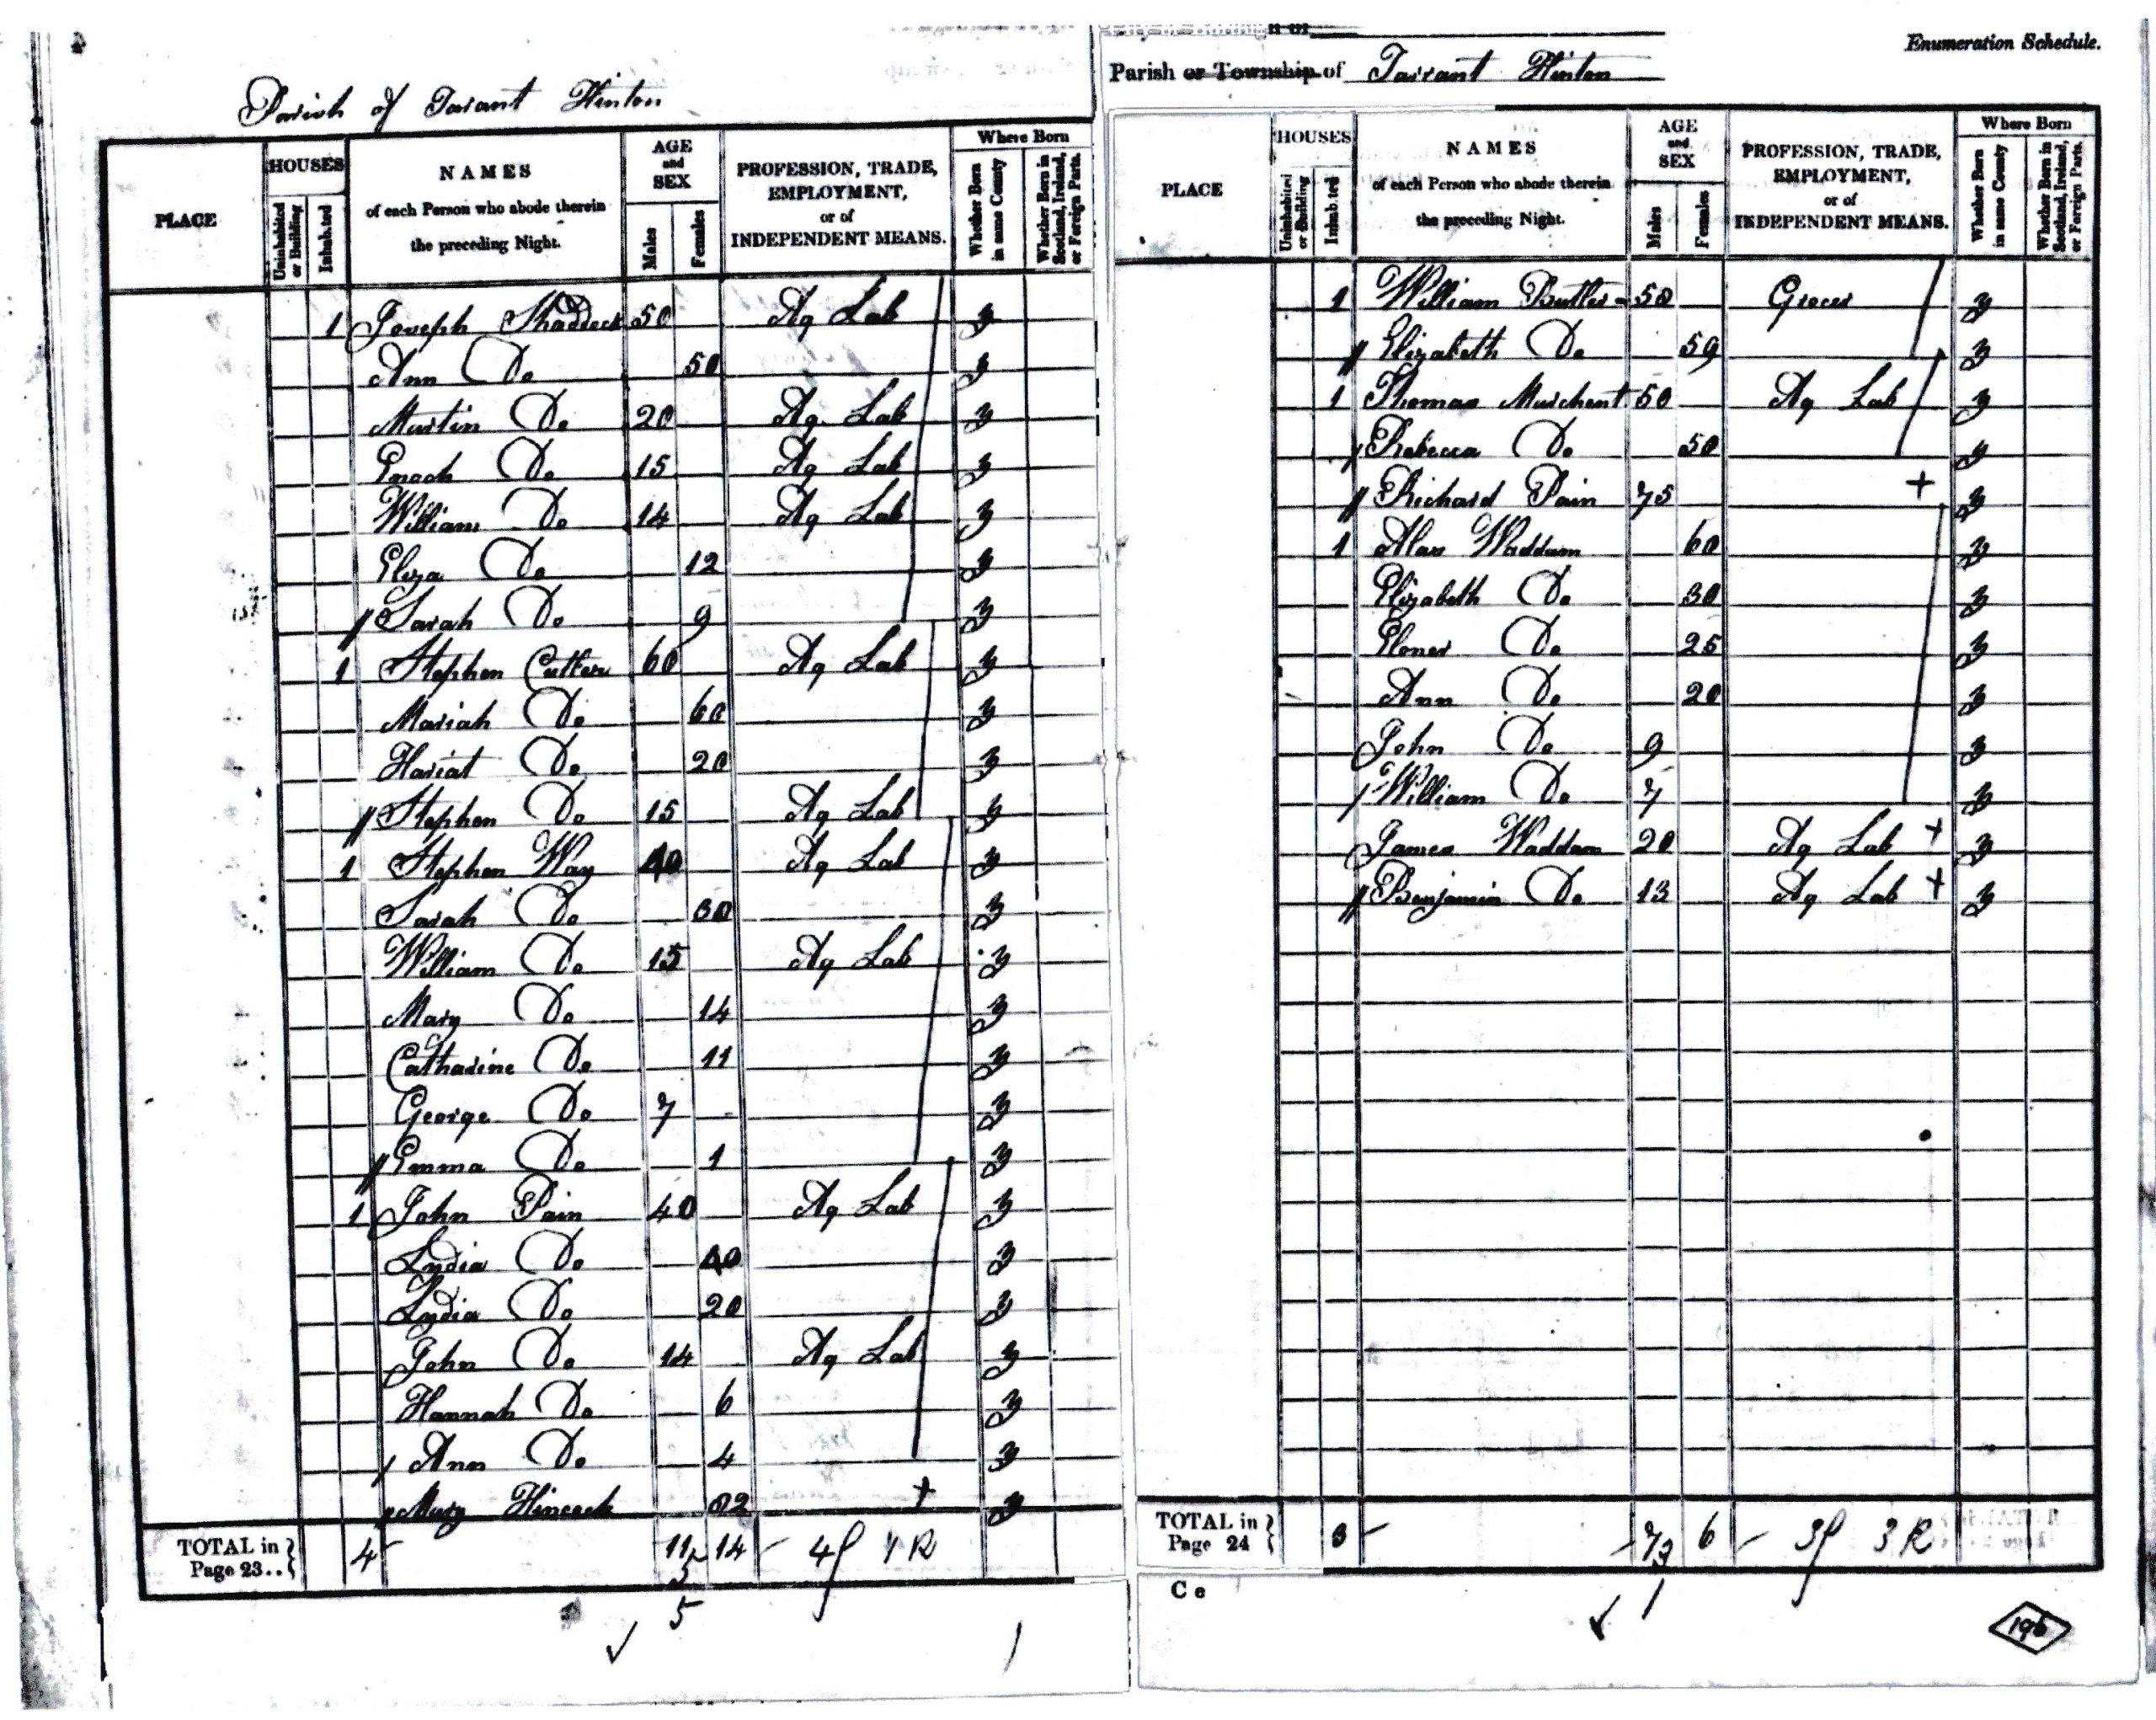 Parish of Tarant Hinton
PLACE
HOUSES
Uninhabited or Building
Inhabited
NAMES
of each Person who abode therein
the preceding Night.
AGE
and
SEX
Males
Females
PROFESSION, TRADE,
EMPLOYMENT,
or of
INDEPENDENT MEANS.
Where Born
Whether Born in same County
Whether Born in Scotland, Ireland, or Foreign Parts.
1 Joseph Shaddock 50 Ag Lab y
Ann Do 50 y
Martin Do 20 Ag Lab y
Enoch Do 15 Ag Lab y
William Do 14 Ag Lab y
Eliza Do 12 y
// Sarah Do 9 y
1 Stephen Cutler 60 Ag Lab y
Mariah Do 60 y
Hariat Do 20 y
// Stephen Do 15 Ag Lab y
1 Stephen Way 40 Ag Lab y
Sarah Do 30 y
William Do 15 Ag Lab y
Mary Do 14 y
Catharine Do 11 y
George Do 7 y
// Emma Do 1 y
1 John Pain 40 Ag Lab y
Lydia Do 40 y
Lydia Do 20 y
John Do 14 Ag Lab y
Hannah Do 6 y
/ Ann Do 4 y
// Mary Hincock + y
TOTAL in Page 23.. 4 11 14
5
5
Enumeration Schedule.
Parish or Township of Tarrant Hinton
PLACE
HOUSES
Uninhabited or Building
Inhabited
NAMES
of each Person who abode therein
the preceding Night.
AGE
and
SEX
Males
Females
PROFESSION, TRADE,
EMPLOYMENT,
or of
INDEPENDENT MEANS.
Where Born
Whether Born in same County
Whether Born in Scotland, Ireland, or Foreign Parts.
1 William Butler 50 Grocer y
// Elizabeth Do 59 y
1 Thomas Marchent 50 Ag Lab y
/ Rebecca Do 50 y
// Richard Pain 75 + y
1 Waddam 60 y
Elizabeth Do 30 y
Eloner Do 25 y
Ann Do 20 y
John Do 9 y
/ William Do 7 y
James Waddam 20 Ag Lab + y
// Benjamin Do 13 Ag Lab + y
TOTAL in Page 24 3 7 6
C e
196